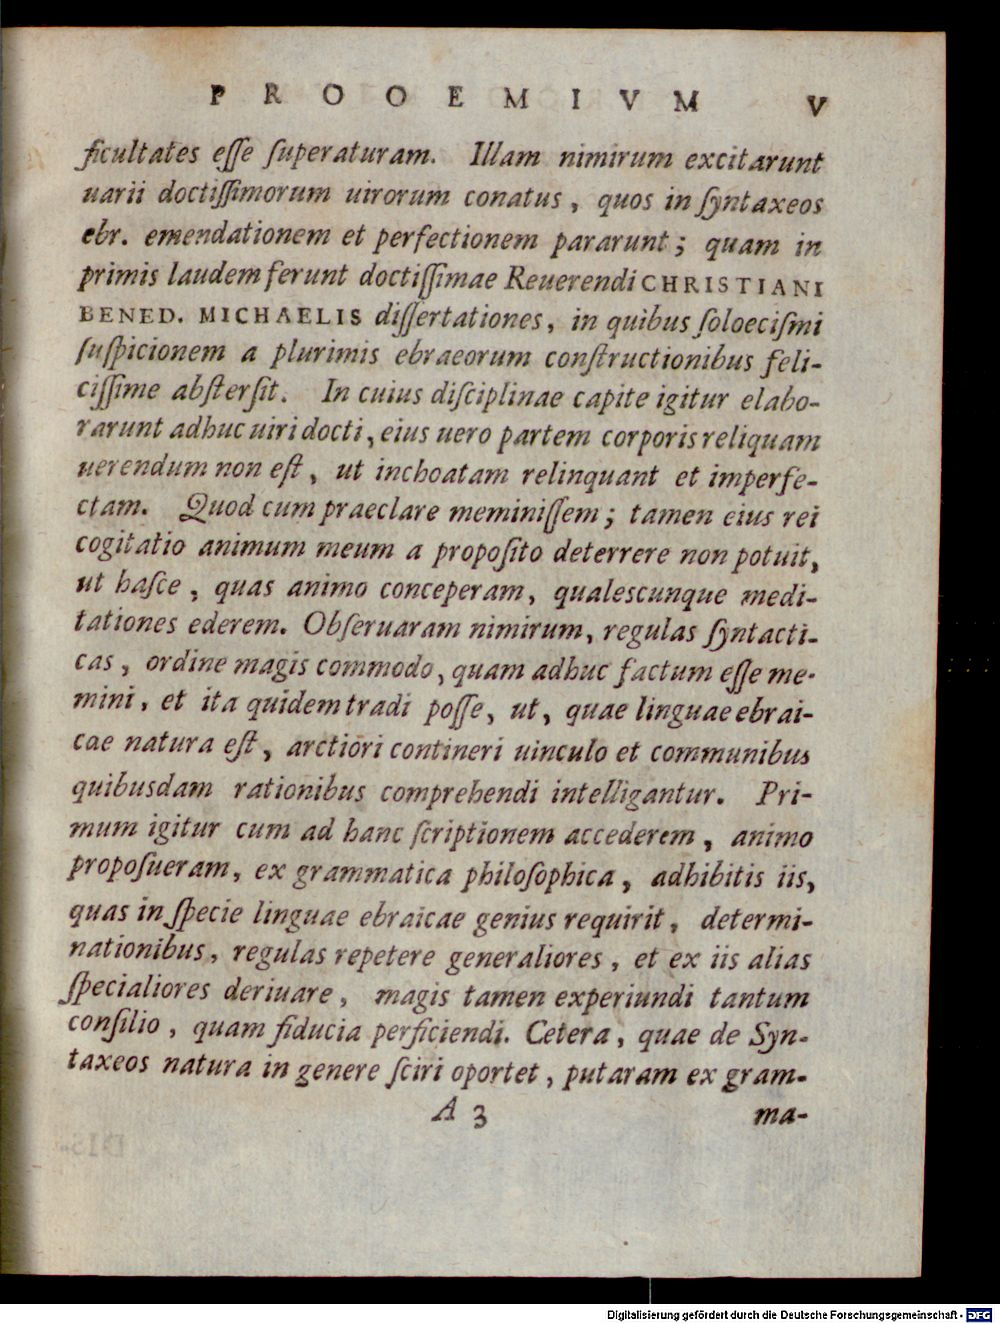 PROOEMIVM V
ficultates eſſe ſuperaturam. Illam nimirum excitarunt
uarii doctiſſimorum uirorum conatus, quos in ſyntaxeos
ebr. emendationem et perfectionem pararunt; quam in
primis laudem ferunt doctiſſimae Reuerendi CHRISTIANI
BENED. MICHAELIS diſſertationes, in quibus ſoloeciſmi
ſuſpicionem a plurimis ebraeorum conſtructionibus feli-
ciſſime abſterſit. In cuius diſciplinae capite igitur elabo-
rarunt adhuc uiri docti, eius uero partem corporis reliquam
uerendum non eſt, ut inchoatam relinquant et imperfe-
ctam. Quod cum praeclare meminiſſem; tamen eius rei
cogitatio animum meum a propoſito deterrere non potuit,
ut haſce, quas animo conceperam, qualescunque medi-
tationes ederem. Obſeruaram nimirum, regulas ſyntacti-
cas, ordine magis commodo, quam adhuc factum eſſe me-
mini, et ita quidem tradi poſſe, ut, quae linguae ebrai-
cae natura eſt, arctiori contineri uinculo et communibus
quibusdam rationibus comprehendi intelligantur. Pri-
mum igitur cum ad hanc ſcriptionem accederem, animo
propoſueram, ex grammatica philoſophica, adhibitis iis,
quas in ſpecie linguae ebraicae genius requirit, determi-
nationibus, regulas repetere generaliores, et ex iis alias
ſpecialiores deriuare, magis tamen experiundi tantum
conſilio, quam fiducia perficiendi. Cetera, quae de Syn-
taxeos natura in genere ſciri oportet, putaram ex gram-
A 3 ma-
Digitalisierung gefördert durch die Deutsche Forschungsgemeinschaft - DFG